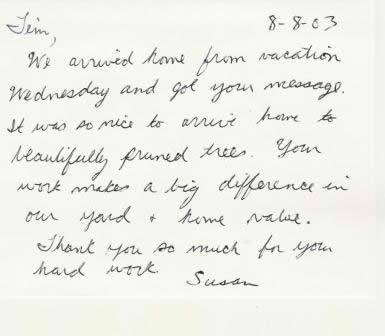 8-8-03
Tim,
We arrived home from vacation
Wednesday and got your message.
It was so nice to arrive home to
beautifully pruned trees. Your
work makes a big difference in
our yard + home value.
Thank you so much for your
hard work.
Susan